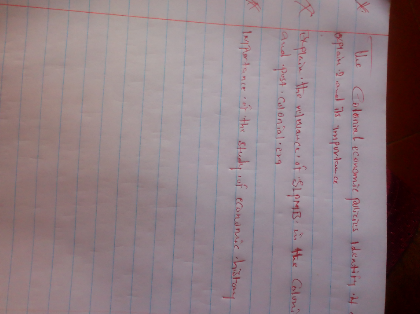 The Colonial economic policies Identify it
explain and its importance
Explain the relevance of SLPMB in the Coloni
and post-colonial era
Importance of the study of economic history